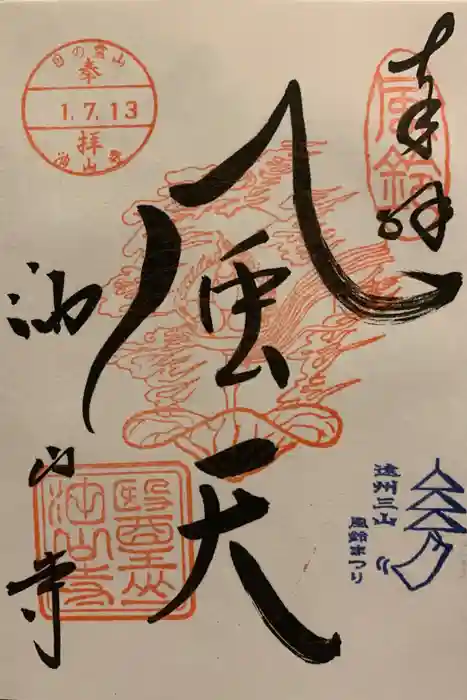 奉拝
風鈴
風天
油山寺
目の霊山
奉
1.7.13
拝
油山寺
醫王山
油山寺
遠州三山
風鈴まつり